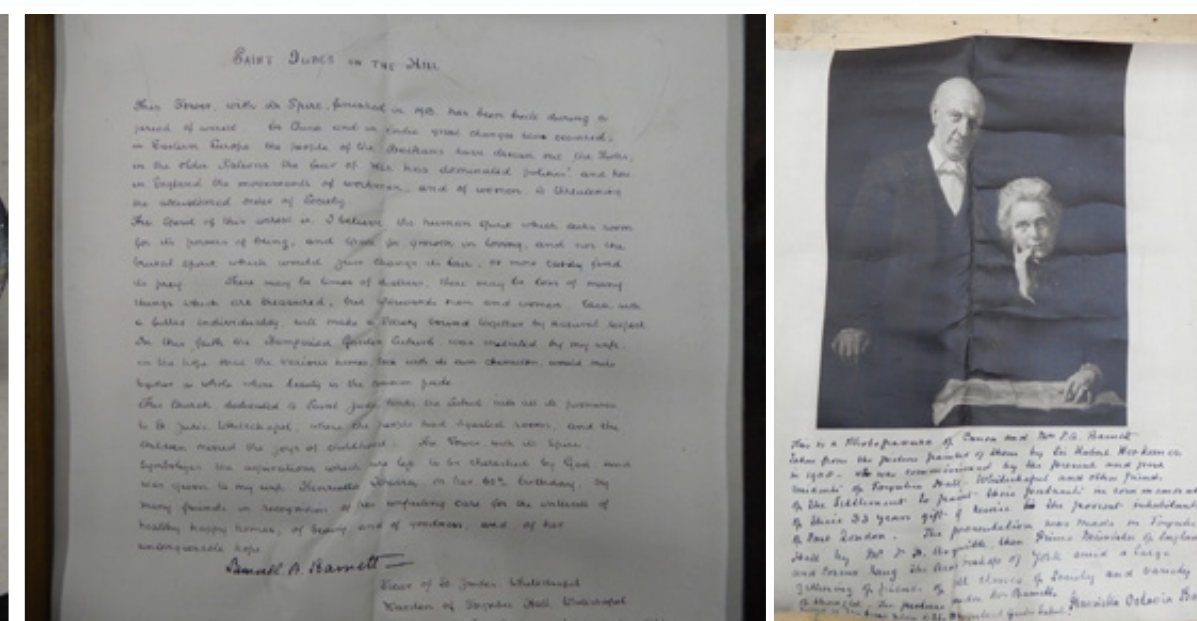 SAINT JUDES ON THE HILL
This Tower, with its Spire, finished in 1913, has been built during a
period of unrest. In China and in India great changes have occurred,
in Eastern Europe the people of the Balkans have driven out the Turks,
in the older Nations the fear of War has dominated politics and here
in England the movements of workmen, and of women, is threatening
the accustomed order of Society.
The Spirit of this unrest is, I believe, the human spirit which seeks room
for its powers of being, and space for growth in loving, and not the
brutal spirit which would just change its lair, or more easily find
its prey. There may be times of distress, there may be loss of many
things which are treasured, but afterwards men and women, each with
a fuller individuality, will make a Society bound together by mutual respect
In this faith the Hampstead Garden Suburb was initiated by my wife,
in the hope that the various homes, each with its own character, would make
together a whole where beauty is the common pride
This Church dedicated to Saint Jude links the Suburb with all its promises
to St Judes Whitechapel, where the people had squalid rooms, and the
children missed the joys of childhood. The Tower, with its Spire,
symbolizes the aspirations which are left to be cherished by God and
was given to my wife Henrietta Octavia on her 60th birthday, by
many friends in recognition of her unfailing care for the interests of
healthy happy homes, of beauty, and of goodness, and of her
unconquerable hope.
Samuel A. Barnett
Vicar of St Judes, Whitechapel
Warden of Toynbee Hall Whitechapel
This is a Photogravure of Canon and Mrs S.A. Barnett
taken from the picture painted of them by Sir Hubert Herkomer
in 1908. It was commissioned by the present and past
residents of Toynbee Hall, Whitechapel and other friends
of the Settlement to present their portraits in commemorat
of their 33 years gift of service to the poorest inhabitants
of East London. The presentation was made in Toynbee
Hall by Mr H. H. Asquith, then Prime Minister of England
and Cosmo Lang the Archbishop of York amid a large
gathering of friends of all classes of Society and variety
of thought.
Henrietta Octavia Ba